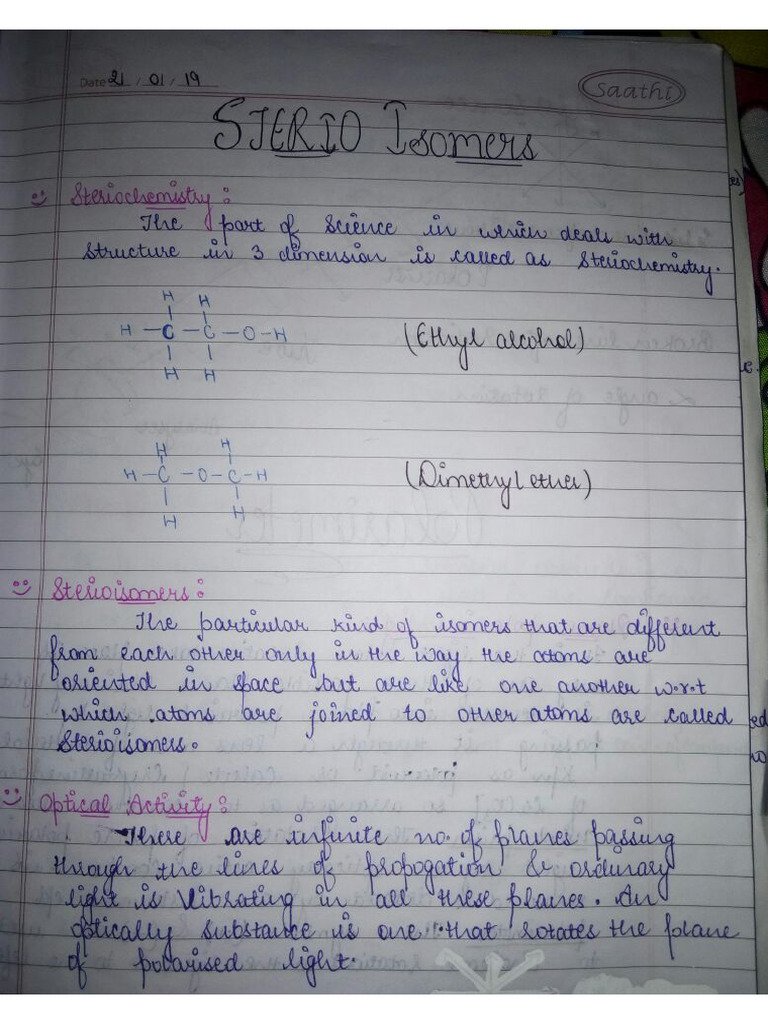 Date 21 / 01 / 19
Saathi
STERIO Isomers
Steriochemistry :
The part of science in which deals with
structure in 3 dimension is called as Steriochemistry.
H H
H – C – C – O – H
H H
(Ethyl alcohol)
H H
H – C – O – C – H
H H
(Dimethyl ether)
Sterioisomers :
The particular kind of isomers that are different
from each other only in the way the atoms are
oriented in space but are like one another w.r.t
which atoms are joined to other atoms are called
Sterioisomers.
Optical Activity :
There are infinite no. of planes passing
through the lines of propogation & ordunary
light is vibrating in all these planes. An
optically substance is one that rotates the plane
of polarised light.